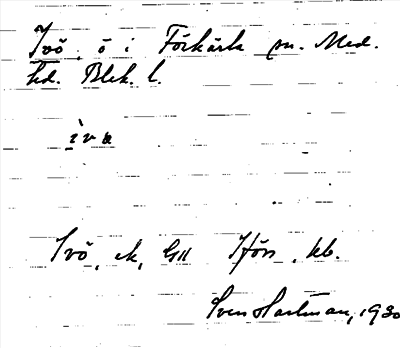 Ivö, ö i Förkärla sn. Med.
hd. Blek. l.
ìva
Ivö, ek, GH
Sven Hartman, 1930